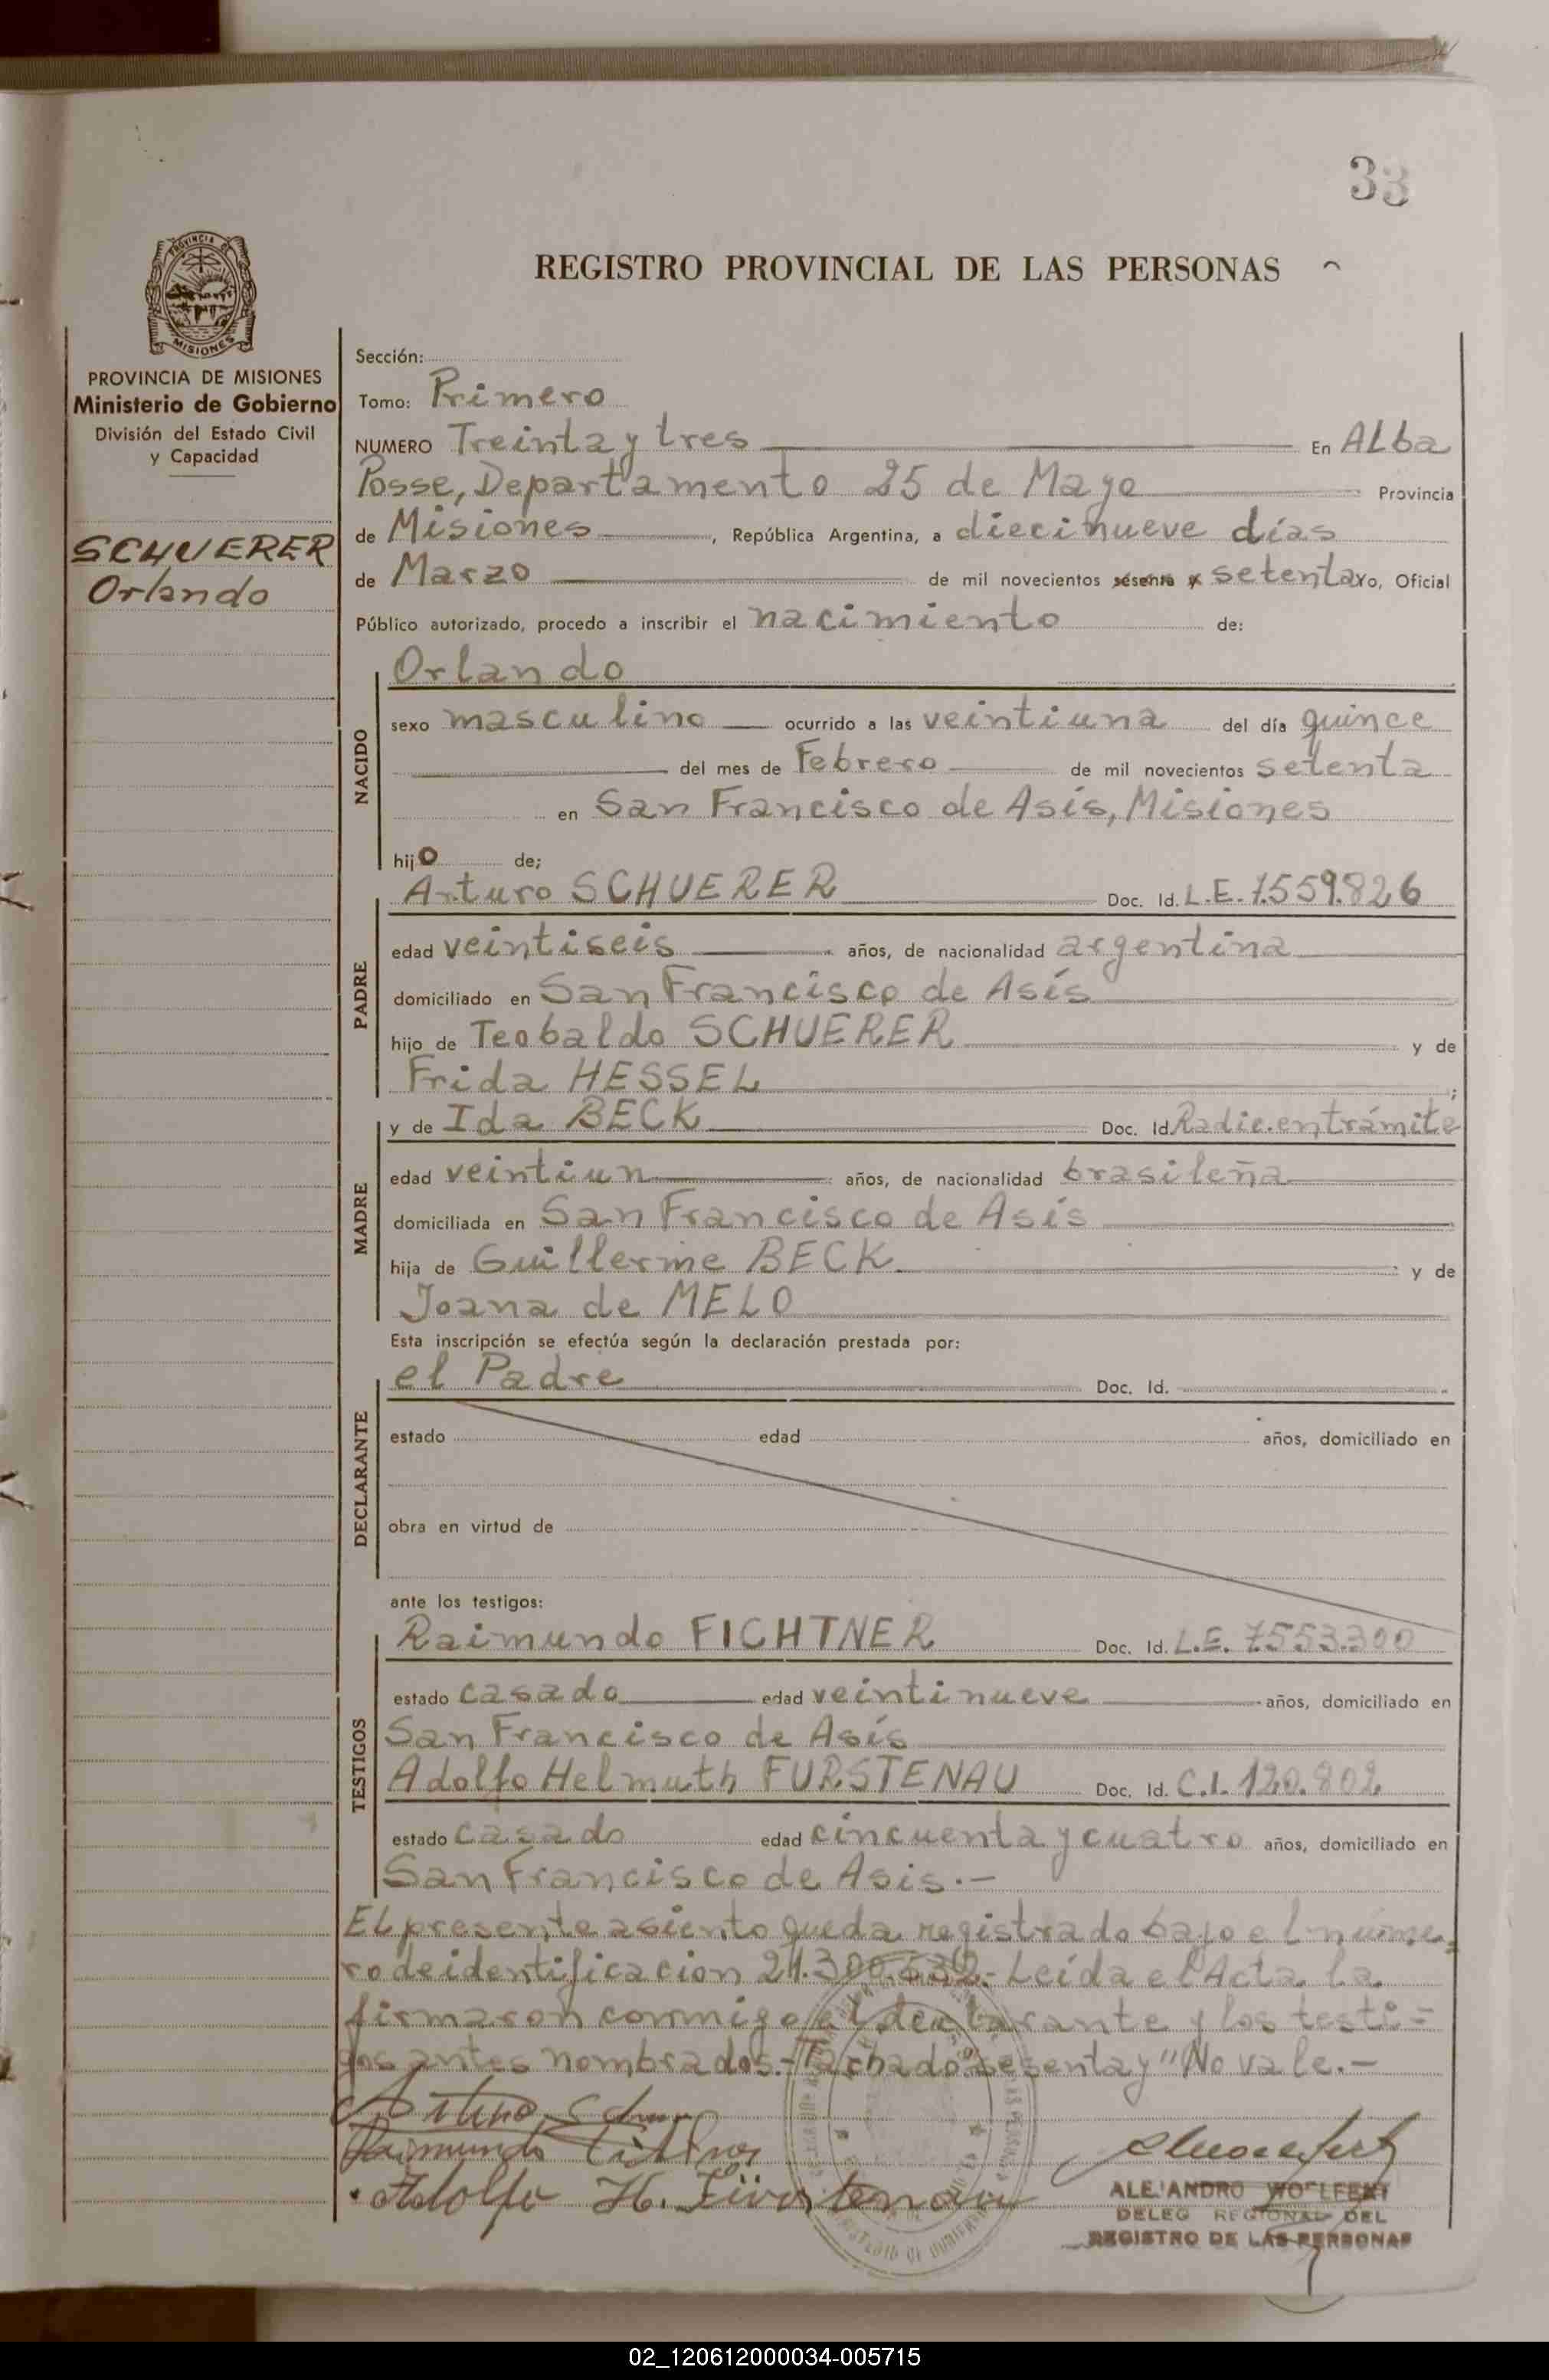 33
REGISTRO PROVINCIAL DE LAS PERSONAS
PROVINCIA DE
MISIONES
PROVINCIA DE MISIONES
Ministerio de Gobierno
División del Estado Civil
y Capacidad
SCHUERER
Orlando
Sección:
Tomo: Primero
NUMERO Treinta y tres En ALba
Posse, Departamento 25 de Mayo Provincia
de Misiones, República Argentina, a diecinueve días
de Marzo de mil novecientos sesenta y setenta yo, Oficial
Público autorizado, procedo a inscribir el nacimiento de:
Orlando
NACIDO
sexo masculino ocurrido a las veintiuna del día quince
del mes de Febrero de mil novecientos setenta
en San Francisco de Asís, Misiones
hijo de;
PADRE
Arturo SCHUERER Doc. Id. L.E. 7.559.826
edad veintiseis años, de nacionalidad argentina
domiciliado en San Francisco de Asís
hijo de Teobaldo SCHUERER y de
Frida HESSEL ;
MADRE
y de Ida BECK Doc. Id Radic. en trámite
edad veintiun años, de nacionalidad brasileña
domiciliada en San Francisco de Asís
hija de Guillerme BECK y de
Joana de MELO
Esta inscripción se efectúa según la declaración prestada por:
DECLARANTE
el Padre Doc. Id.
estado edad años, domiciliado en
obra en virtud de
ante los testigos:
TESTIGOS
Raimundo FICHTNER Doc. Id. L.E. 7553.300
estado casado edad veintinueve años, domiciliado en
San Francisco de Asís
Adolfo Helmuth FURSTENAU Doc. Id. C.I. 120.802
estado casado edad cincuenta y cuatro años, domiciliado en
San Francisco de Asis.-
EL presente asiento queda registrado bajo el núme-
ro de identificacion 21.300.532.- Leída el Acta la
firmaron conmigo el declarante y los testi-
gos antes nombrados.- Tachado sesenta y" No vale.-
Arturo
Raimundo
Adolfo H. Fürstenau
ALEJANDRO WOLFEERT
DELEG REGIONAL DEL
REGISTRO DE LAS PERSONAS
02_120612000034-005715